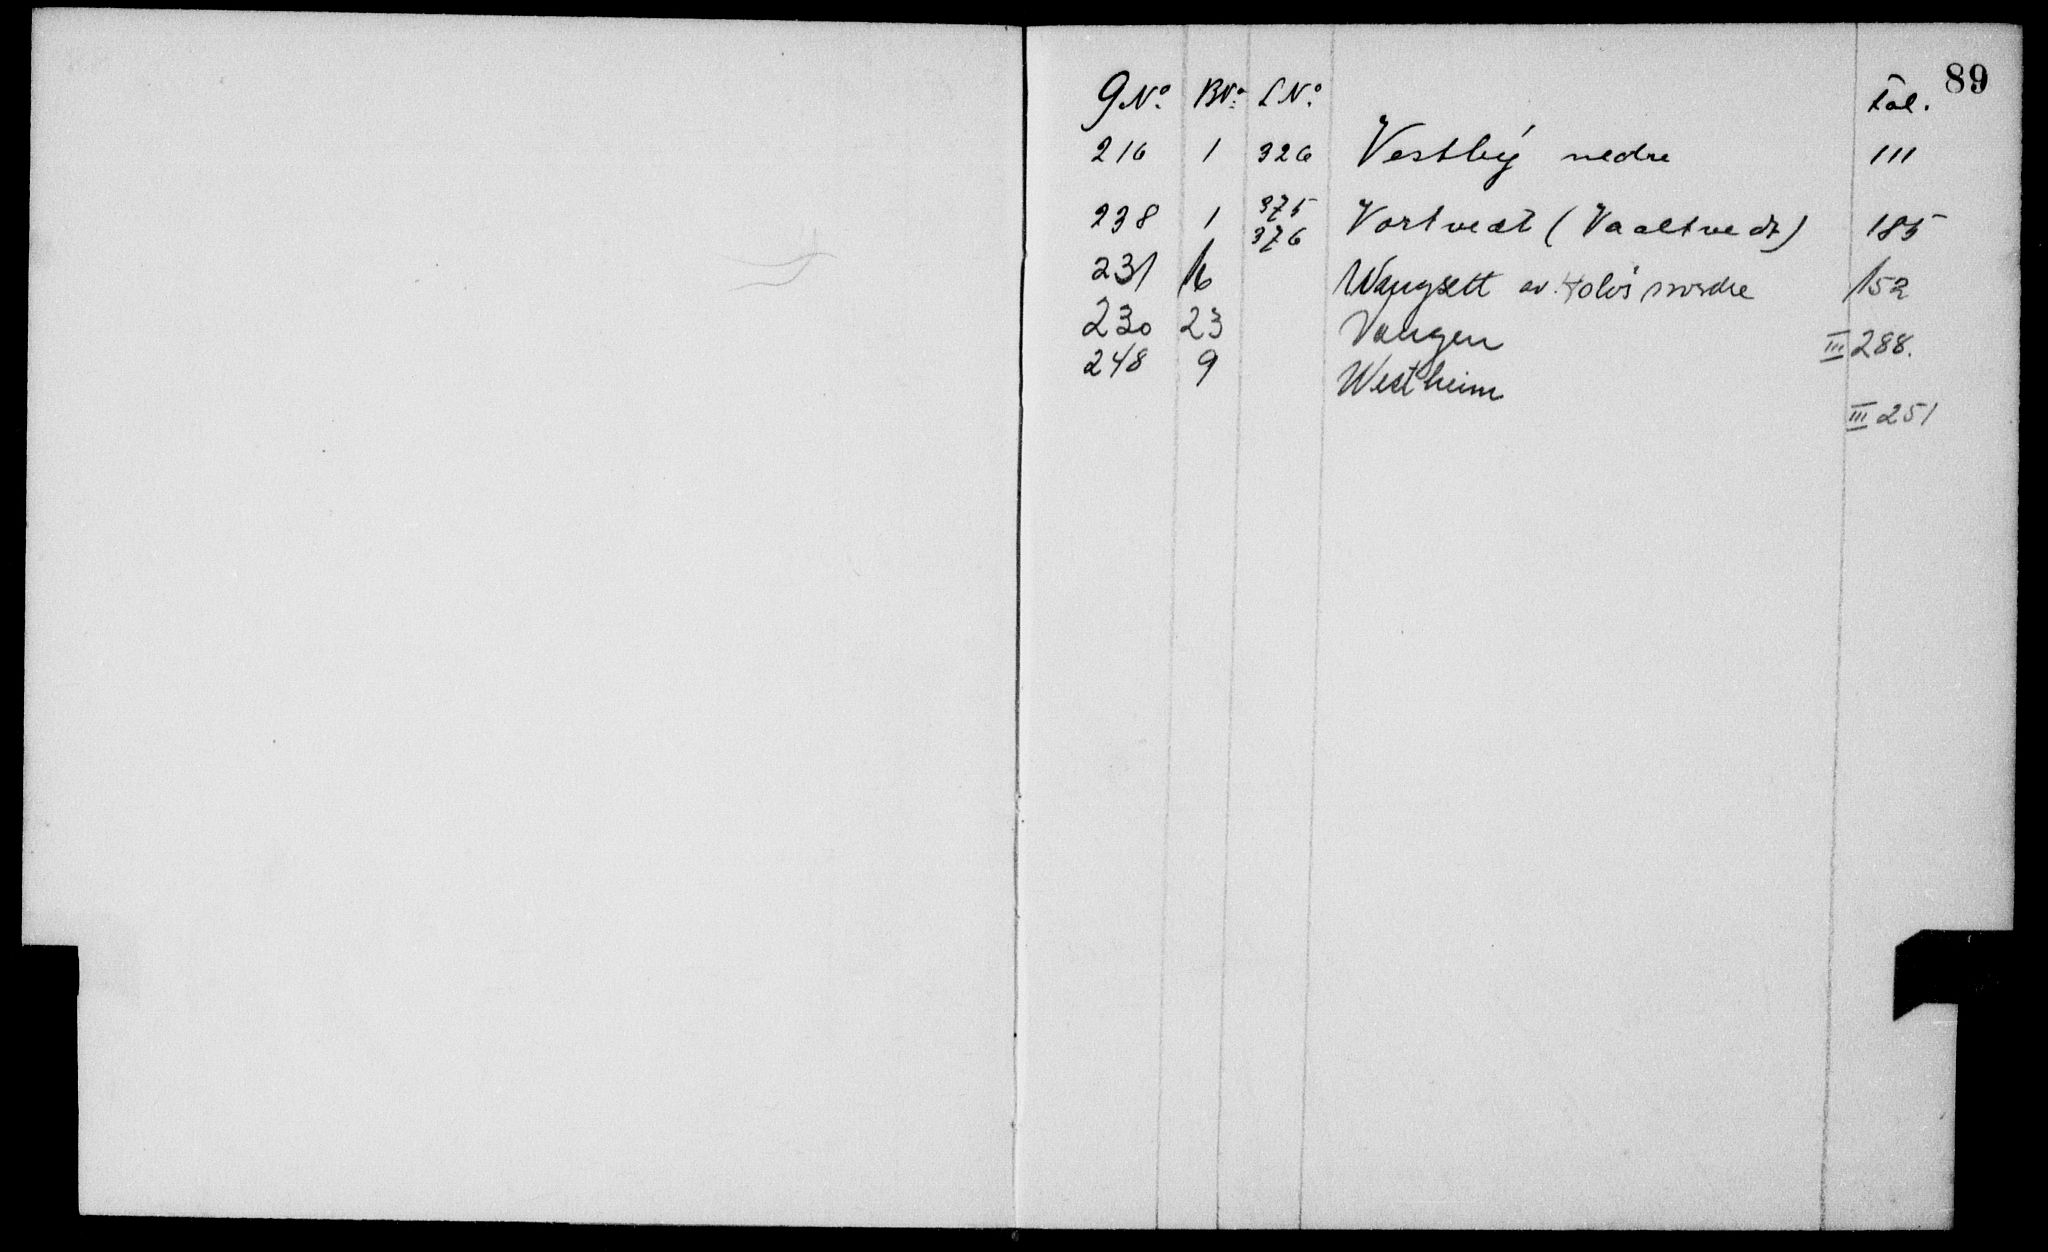 89
GNo. BNo. LNo. Fol.
216 1 326 Vestby nedre 111
238 1 375 376 Vortvedt (Vaaltvedt) 185
231 16 Wangsett av Holós nordre 152
230 23 Vangen III 288.
248 9 Westheim
III 251